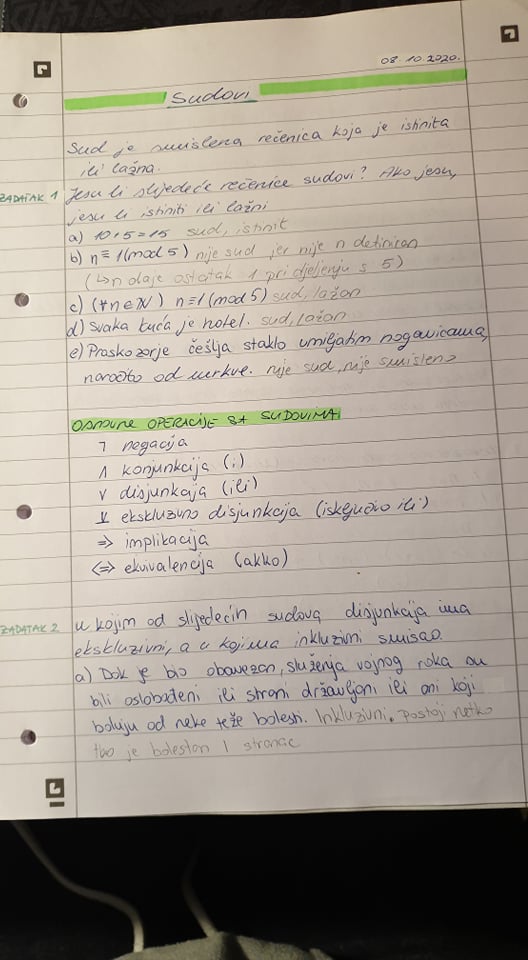 08.10.2020.
Sudovi
Sud je smislena rečenica koja je istinita
ili lažna.
ZADATAK 1 Jesu li slijedeće rečenice sudovi? Ako jesu,
jesu li istiniti ili lažni
a) 10+5=15 sud, istinit
b) n≡1(mod 5) nije sud jer nije n definiran
(↳n daje ostatak 1 pri djeljenju s 5)
c) (∀n∈N) n≡1(mod 5) sud, lažan
d) Svaka kuća je hotel. sud, lažan
e) Praskozorje češlja staklo umiljatim nogavicama,
naročito od mrkve. nije sud, nije smisleno
OSNOVNE OPERACIJE SA SUDOVIMA
¬ negacija
∧ konjunkcija (i)
∨ disjunkcija (ili)
⊻ ekskluzivno disjunkcija (isključivo ili)
⇒ implikacija
⇔ ekvivalencija (akko)
ZADATAK 2 U kojim od slijedećih sudova disjunkcija ima
ekskluzivni, a u kojima inkluzivni smisao.
a) Dok je bio obavezan, služenja vojnog roka su
bili oslobođeni ili strani državljani ili oni koji
boluju od neke teže bolesti. Inkluzivni. Postoji netko
tko je bolestan I stranac